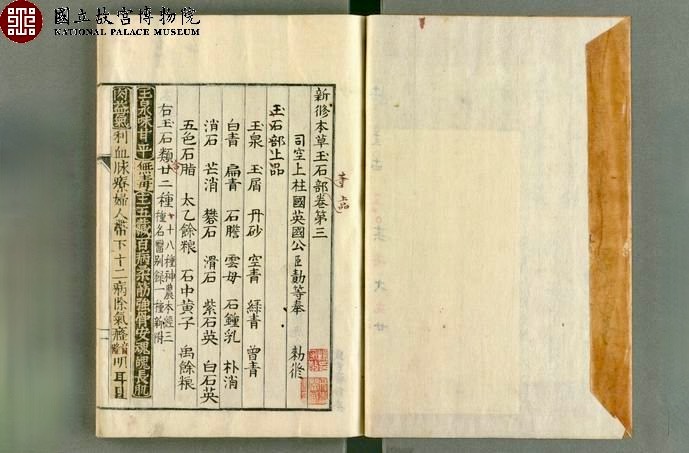 國立故宮博物院
NATIONAL PALACE MUSEUM
新修本草玉石部卷第三
司空上柱國英國公臣勣等奉 勅修
玉石部上品
玉泉 玉屑 丹砂 空青 綠青 曾青
白青 扁青 石膽 雲母 石鍾乳 朴消
消石 芒消 礬石 滑石 紫石英 白石英
五色石脂 太乙餘粮 石中黄子 禹餘粮
右玉石類廿二種 十八種神農本經三種名醫別録一種新附
玉泉味甘平無毒主五藏百病柔筋強骨安魂魄長肌
肉益氣利血脉療婦人帶下十二病除氣癃明耳目